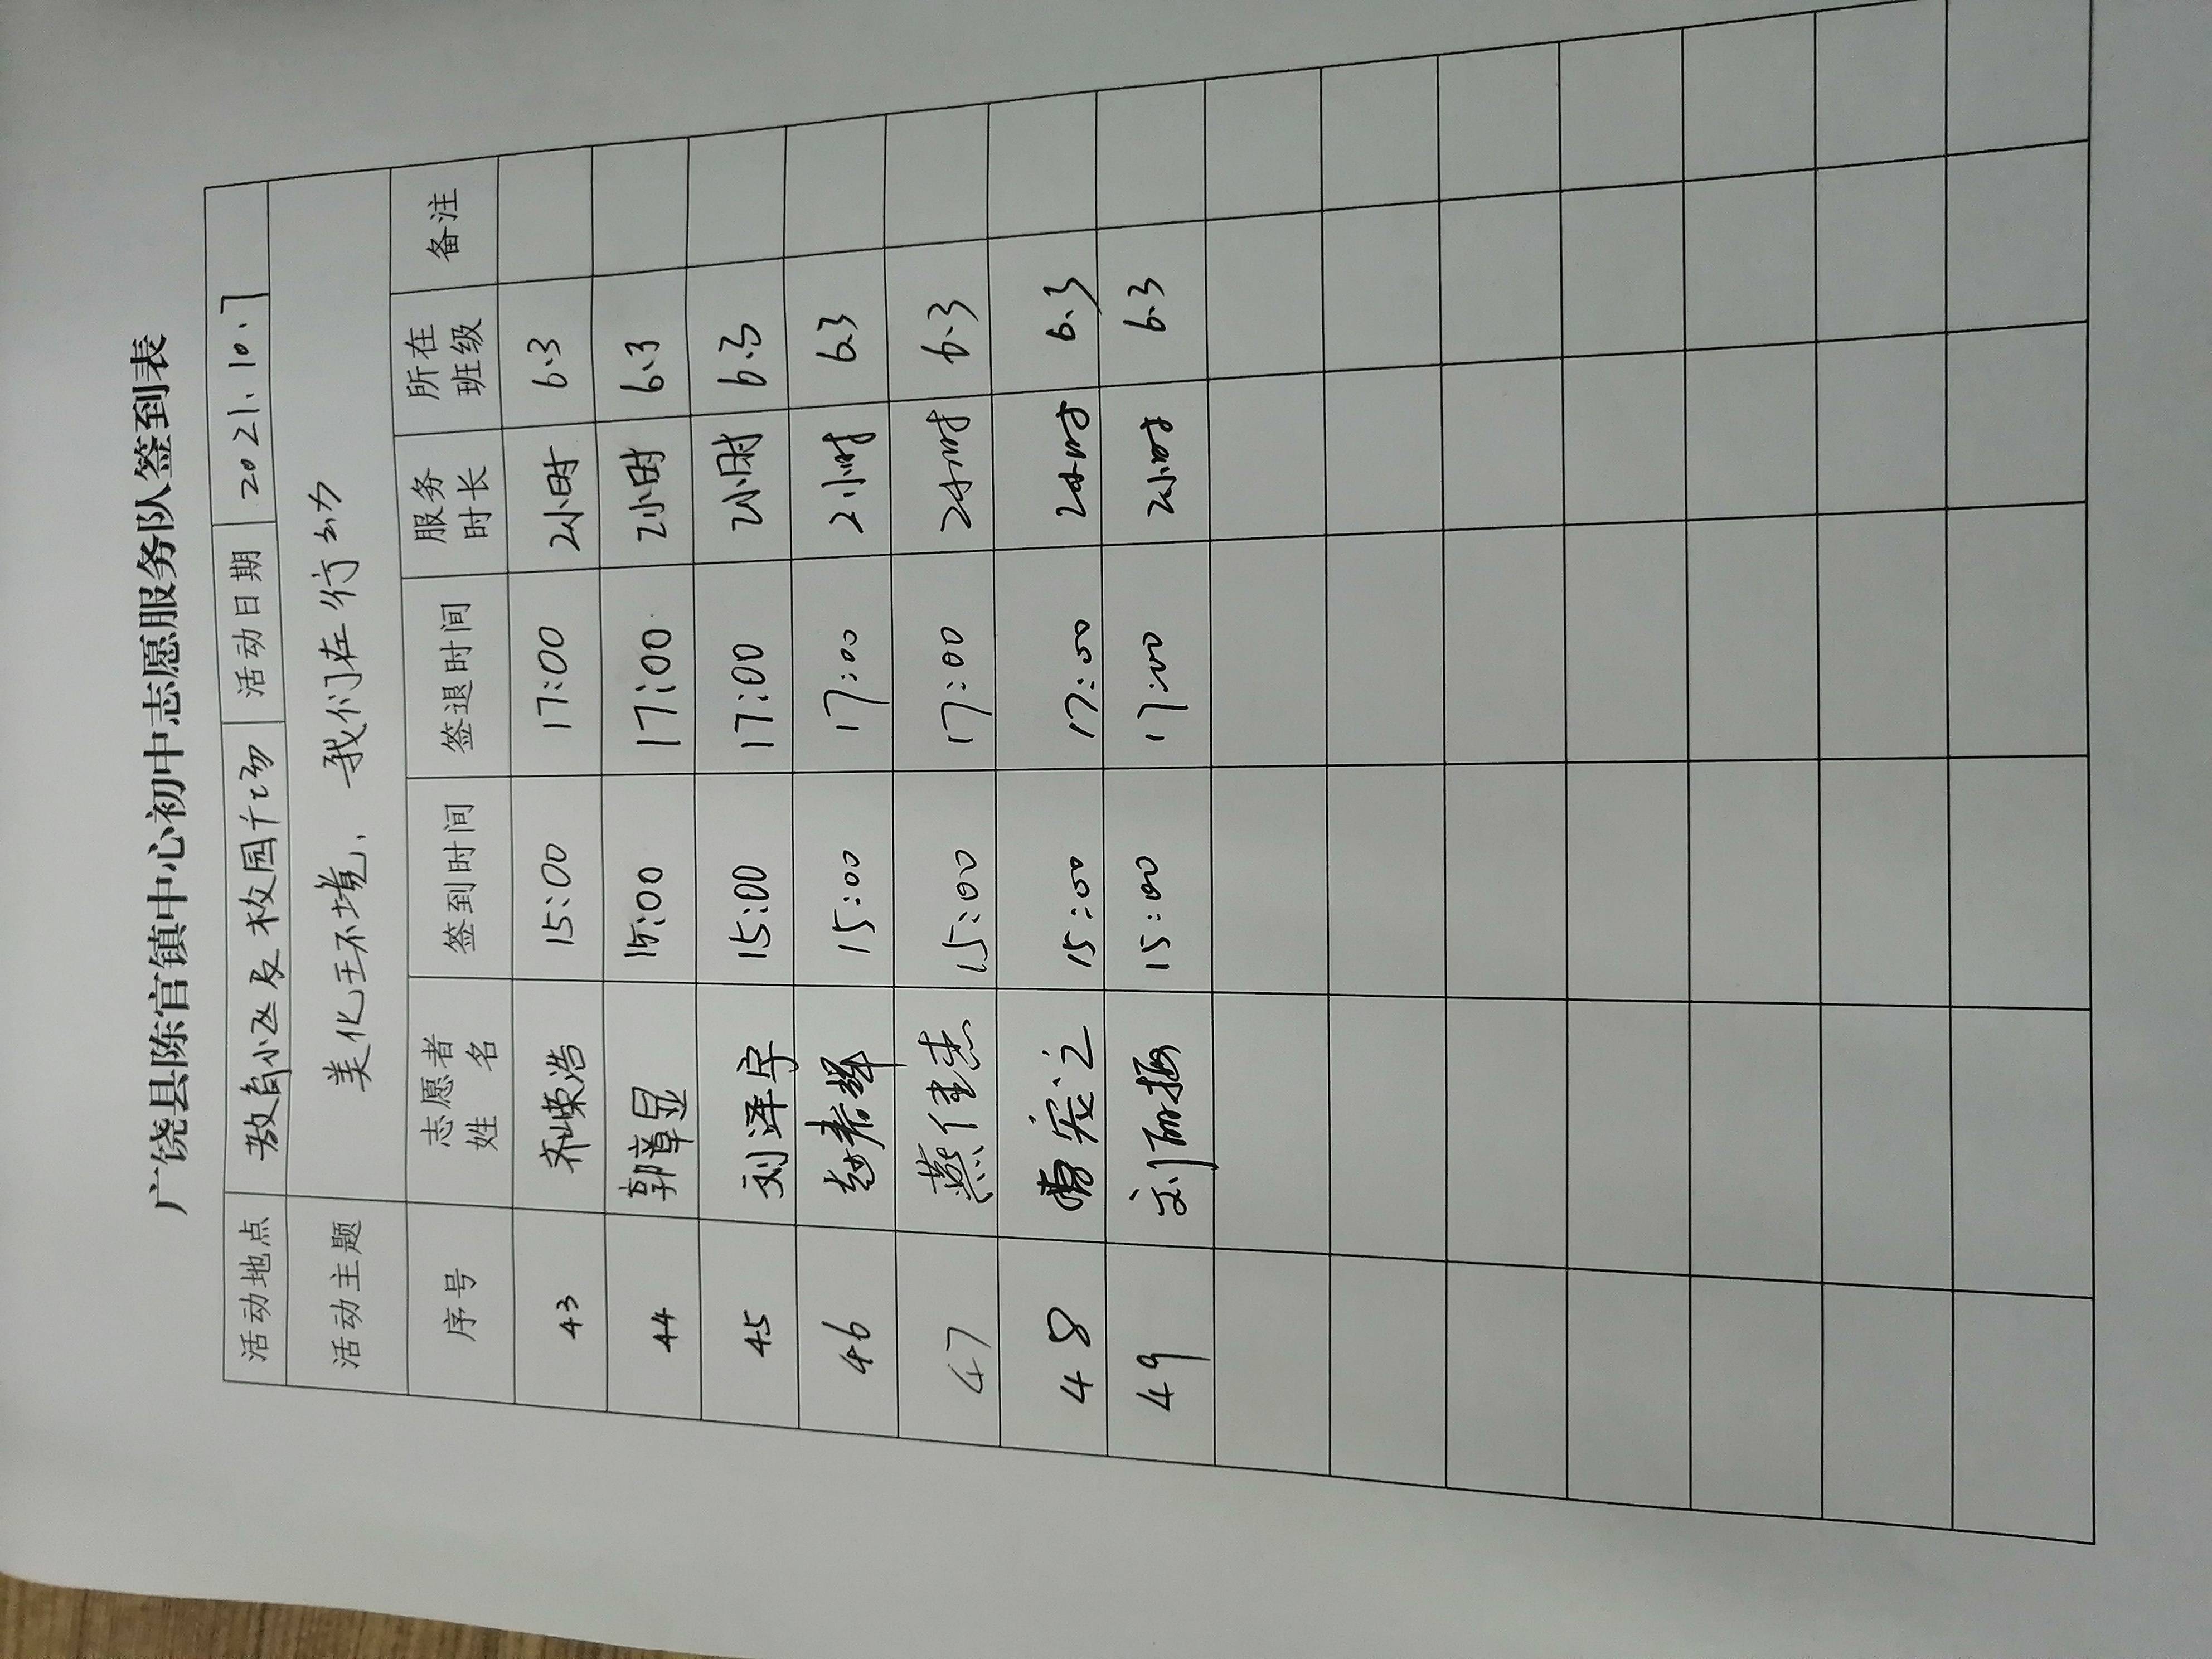 广饶县陈官镇中心初中志愿服务队签到表
活动地点 教育小区及校园广场 活动日期 2021.10.7
活动主题 美化环境,我们在行动
序号 志愿者姓名 签到时间 签退时间 服务时长 所在班级 备注
43 齐嵘浩 15:00 17:00 2小时 6.3
44 郭章显 15:00 17:00 2小时 6.3
45 刘泽宇 15:00 17:00 2小时 6.3
46 15:00 17:00 2小时 6.3
47 燕佳杰 15:00 17:00 2小时 6.3
48 15:00 17:00 2小时 6.3
49 15:00 17:00 2小时 6.3